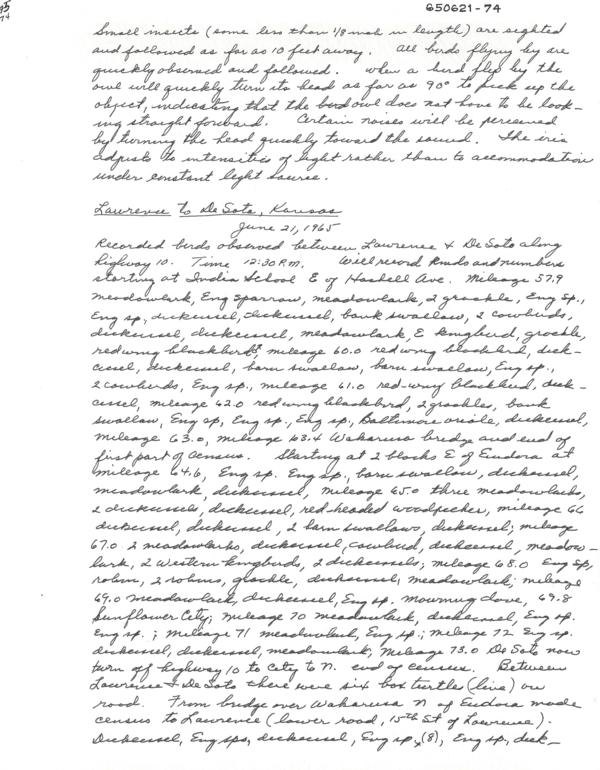 650621-74
Small insects (some less than 1/8 inch in length) are sighted
and followed as far as 10 feet away. All birds flying by are
quickly observed and followed. When a bird flys by the
owl will quickly turn its head as far as 90° to pick up the
object, indicating that the bird owl does not have to be look-
ing straight forward. Certain noises will be perceived
by turning the head quickly toward the sound. The iris
adjusts to intensities of light rather than to accommodation
under constant light source.
Lawrence to De Soto, Kansas
June 21, 1965
Recorded birds observed between Lawrence & De Soto along
highway 10. Time 12:30 P.M. Will record kinds and numbers
starting at Indian School E of Haskell Ave. Mileage 57.9
meadowlark, Eng sparrow, meadowlark, 2 grackle, Eng sp.,
Eng sp., dickcissel, dickcissel, bank swallow, 2 cowbirds,
dickcissel, dickcissel, meadowlark, E kingbird, grackle,
redwing blackbird, mileage 60.0 redwing blackbird, dick-
cissel, dickcissel, barn swallow, barn swallow, Eng sp.,
2 cowbirds, Eng sp., mileage 61.0 red-wing blackbird, dick-
cissel, mileage 62.0 redwing blackbird, 2 grackles, bank
swallow, Eng sp, Eng sp., Eng sp., Baltimore oriole, dickcissel,
mileage 63.0, mileage 63.4 Wakarusa bridge and end of
first part of census. Starting at 2 blocks E of Eudora at
mileage 64.6, Eng sp. Eng sp., barn swallow, dickcissel,
meadowlark, dickcissel, mileage 65.0 three meadowlarks,
2 dickcissels, dickcissel, red-headed woodpecker, mileage 66
dickcissel, dickcissel, 2 barn swallows, dickcissel; mileage
67.0 2 meadowlarks, dickcissel, cowbird, dickcissel, meadow-
lark, 2 western kingbirds, 2 dickcissels; mileage 68.0 Eng sp,
robin, 2 robins, grackle, dickcissel, meadowlark; mileage
69.0 meadowlark, dickcissel, Eng sp., mourning dove, 69.8
Sunflower City; mileage 70 meadowlark, dickcissel, Eng sp.
Eng sp.; mileage 71 meadowlark, Eng sp.; mileage 72 Eng sp.
dickcissel, dickcissel, meadowlark; mileage 73.0 De Soto now
turn off highway 10 to City to N. end of census. Between
Lawrence & De Soto there were six box turtles (live) on
road. From bridge over Wakarusa N of Eudora made
census to Lawrence (lower road, 15th St of Lawrence).
Dickcissel, Eng sps, dickcissel, Eng sp, (8), Eng sp., dick-